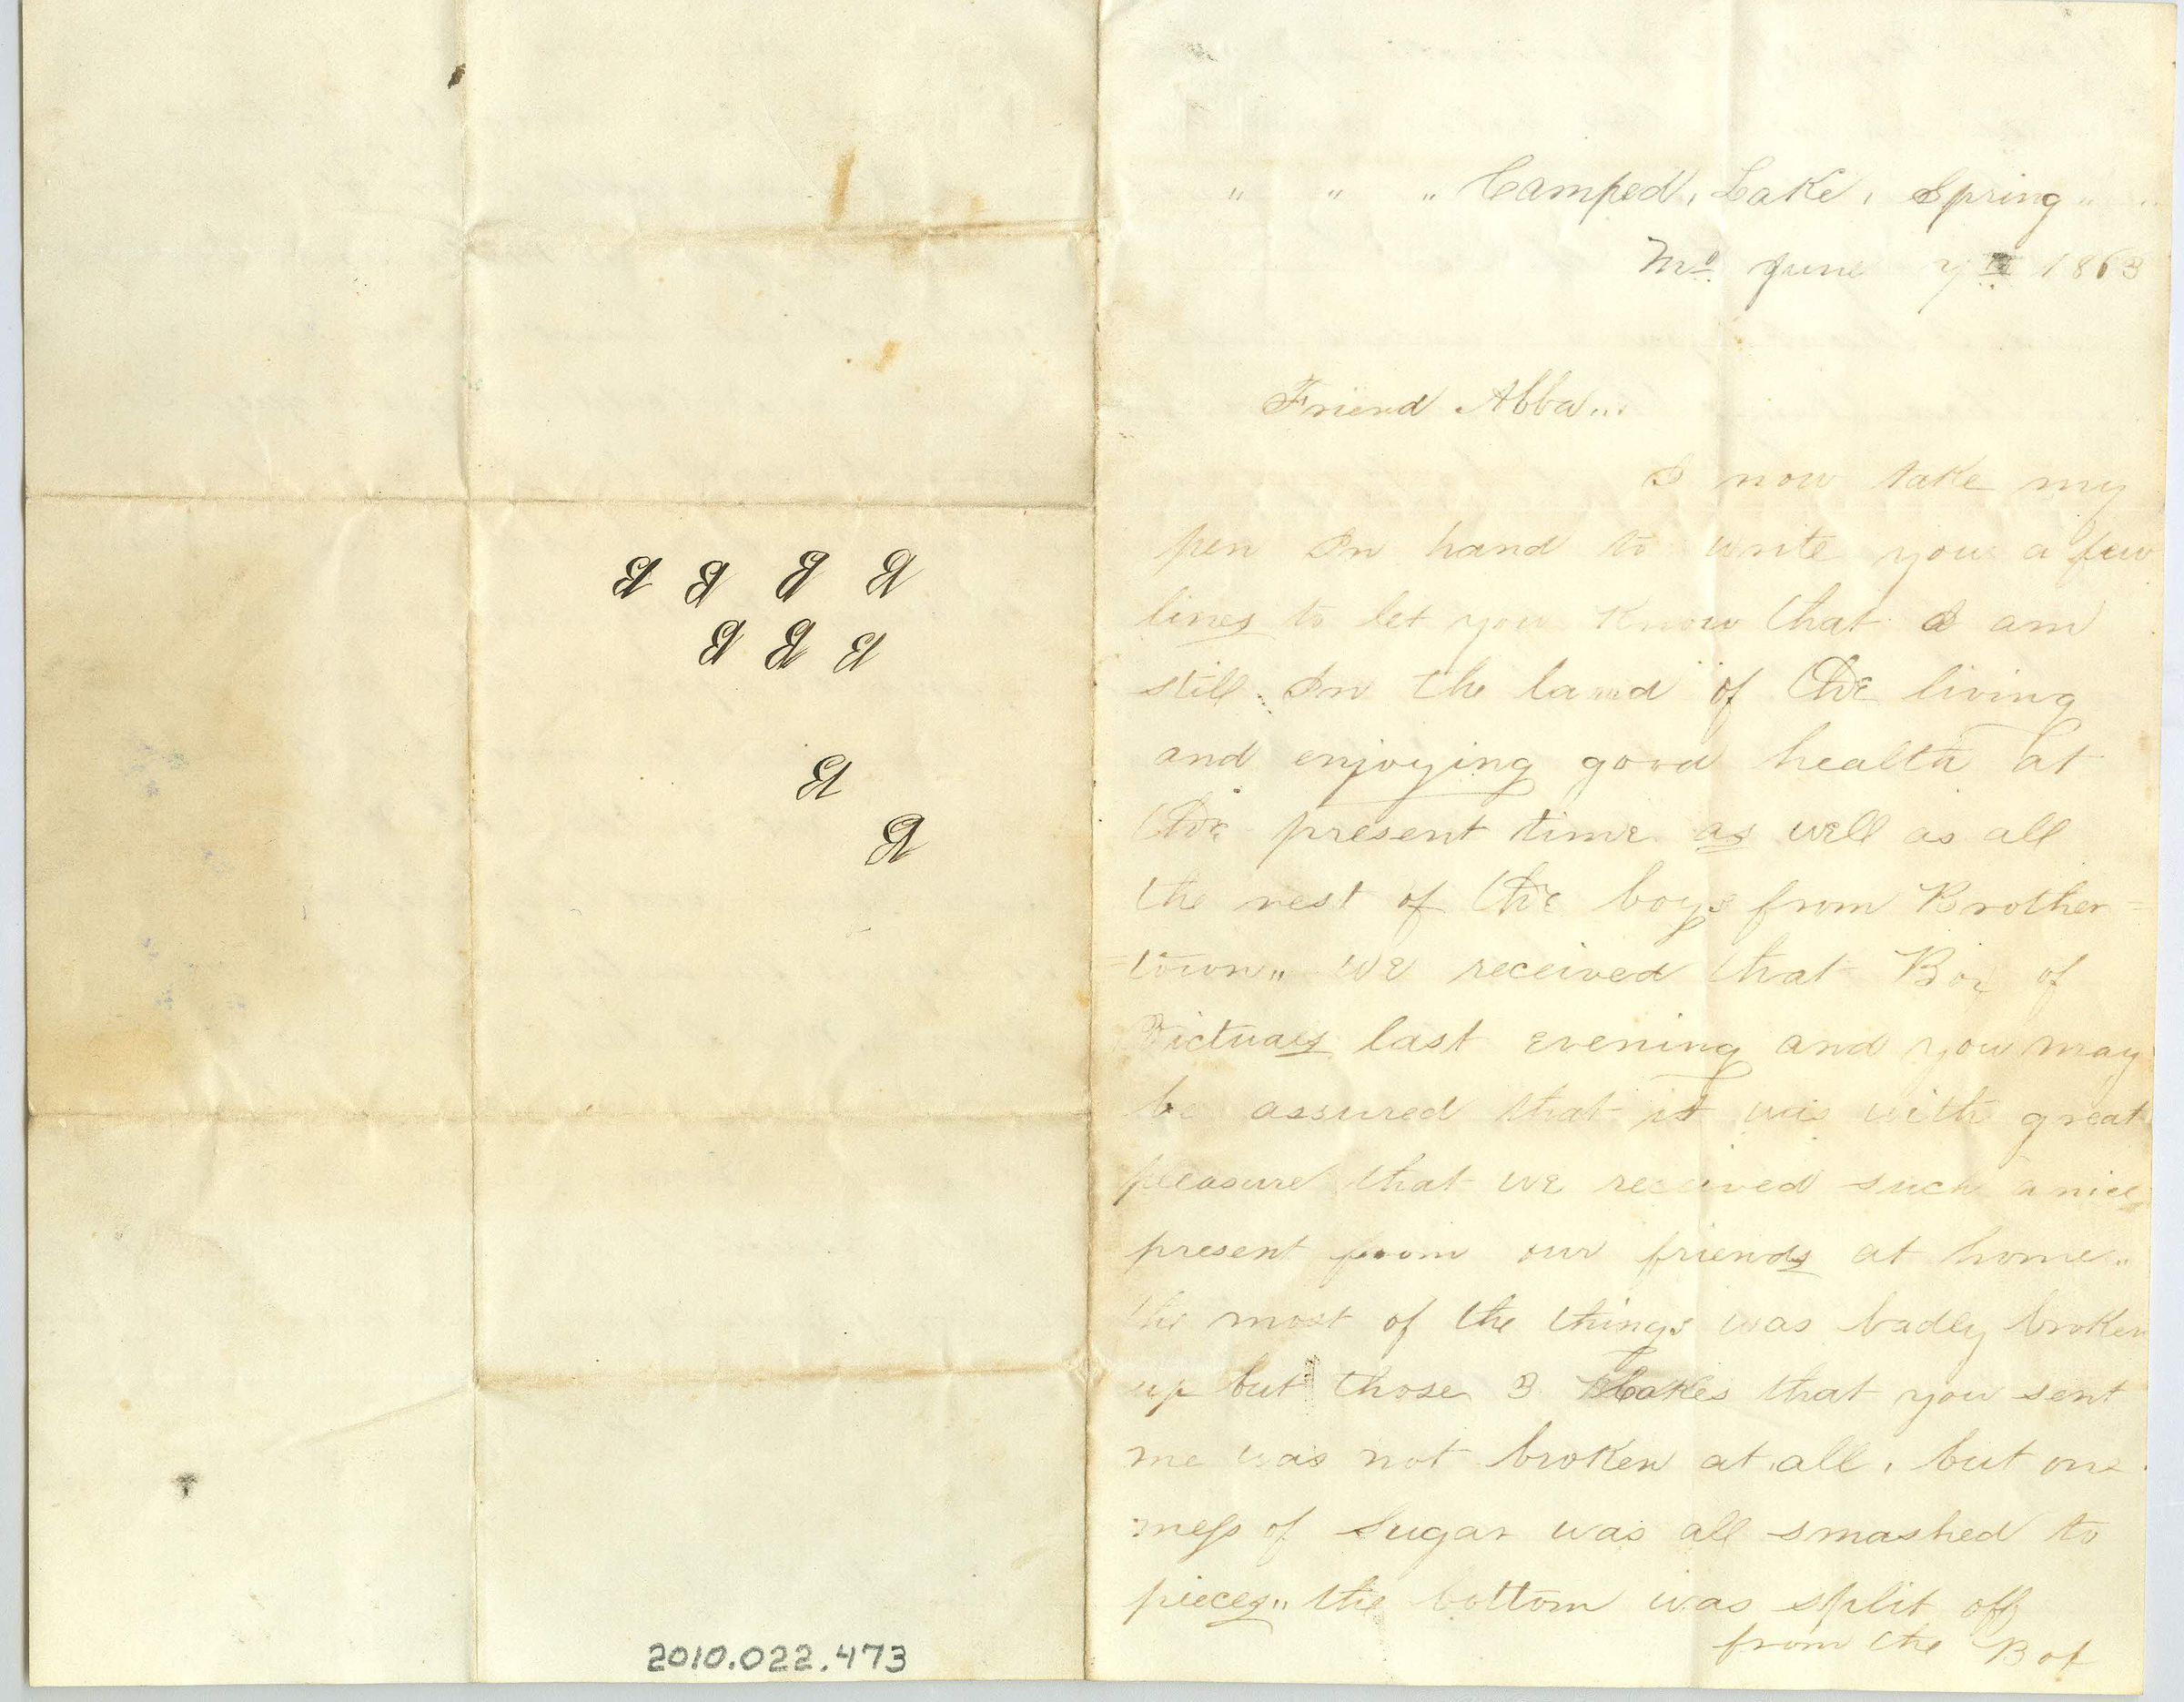 " " " Camped, Lake, Spring " "
Mo. June 1863
Friend Abba...
I now take my
pen In hand to write you a few
lines to let you know that I am
still In the land of the living
and enjoying good health at
the present time as well as all
the rest of the boys from Brother=
=town,, we received that Box of
last evening and you may
be assured that it was with great
pleasure that we received such a nice
present from our friends at home..
the most of the things was badly broken
up but those 3 Cakes that you sent
me was not broken at all, but one
mess of Sugar was all smashed to
pieces,, the bottom was split off
from the
2010.022.473